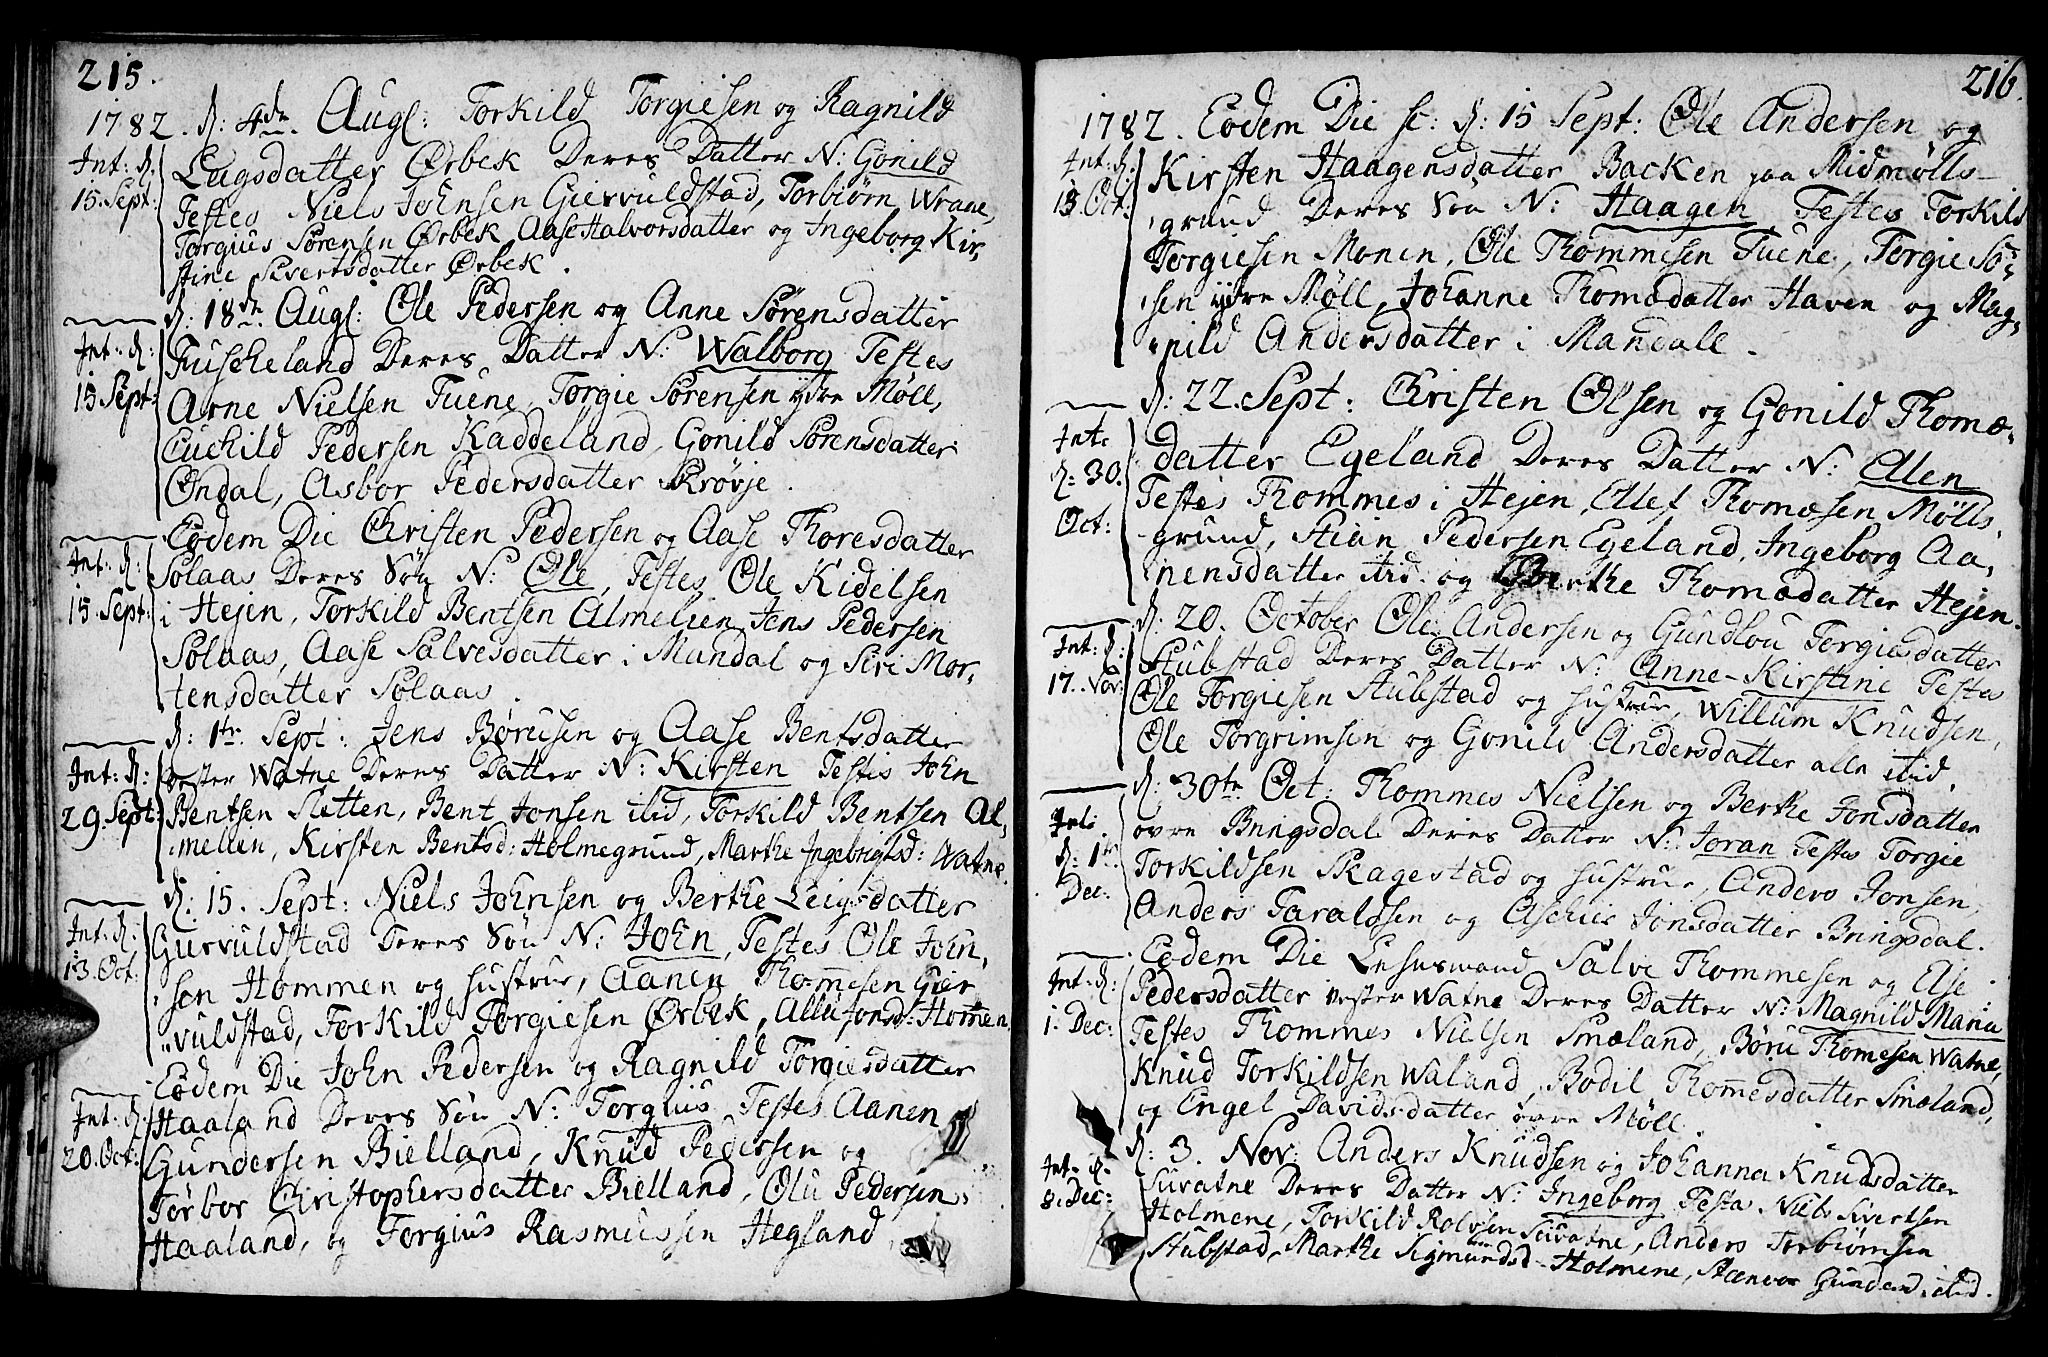 215.
1782. d: 4de Aug: Torkild Torgiesen og Ragnild
Int: d: 15. Sept:
Lugsdatter Ørbek Deres Datter N: Gonild
Testes Niels Johnsen Giervuldstad, Torbiørn Wrane,
Torgius Sørensen Ørbek Aase Halvorsdatter og Ingeborg Kir,
stine Sivertsdatter Ørbek.
d: 18de Aug: Ole Pedersen og Anne Sørensdatter
Int: d: 15 Sept:
Fuskeland Deres Datter N: Walborg Testes
Arne Nielsen Tuene, Torgie Sørensen ydre Møll,
Euchild Pedersen Kaddeland, Gonild Sørensdatter
Øndal, Asbor Pedersdatter Skrøvje.
Eodem Die Christen Pedersen og Aase Thoresdatter
Int: d: 15. Sept:
Solaas Deres Søn N: Ole, Testes Ole Kidelsen
i Hejen, Torkild Bentsen Almelien Jens Pedersen
Solaas, Aase Salvesdatter i Mandal og Siri Mor,
tensdatter Solaas.
d: 1te. Sept: Jens Børusen og Aase Bentsdatter
Int: d: 29. Sept:
Vester Watne Deres Datter N: Kirsten Testis John
Bentsen Sletten, Bent Jonsen ibid, Torkild Bentsen Al,
melien, Kirsten Bentsd: Holmegrund, Marthe Ingebrigtsd: Watne.
d: 15. Sept: Niels Johnsen og Berthe Leigsdatter
Int: d: 13. Oct:
Giervuldstad Deres Søn N: John, Testes Ole John,
sen Hommen og hustrue, Aanen Thommesen Gier
vuldstad, Torkild Torgiesen Ørbek, Allu Jonsd: Homen.
Eodem Die John Pedersen og Ragnild Torgiesdatter
Int: d: 20. Oct:
Haaland Deres Søn N: Torgius Testes Aanen
Gundersen Bielland, Knud Pedersen og
Torbor Christophersdatter Bielland, Olu Pedersen
Haaland, og Torgius Rasmussen Hegland
216.
1782. Eodem Die sc: d: 15 Sept: Ole Andersen og
Int: d: 13. Oct:
Kirsten Haagensdatter Backen paa Midmølls-
grund Deres Søn N: Haagen Testes Torkild
Torgiesen Monen, Ole Thommesen Tuene, Torgie Sø,
sen ydre Møll, Johanne Thomædatter Haven og Mag,
nild Andersdatter i Mandall.
d: 22. Sept: Christen Olsen og Gonild Thomæ,
Int: d: 30. Oct:
datter Egeland Deres Datter N: Elen
Testes Thommes i Hejen, Ellef Thomæsen Mølls
grund, Stian Pedersen Egeland, Ingeborg Aa,
nensdatter ibid. og Berthe Thomædatter Hejen.
d: 20. October Ole Andersen og Gundlou Torgiesdatter
Int: d: 17. Nov:
Stubstad Deres Datter N: Anne-Kirstine Testes
Ole Torgiesen Stubstad og hustrue, Willum Knudsen,
Ole Torgrimsen og Gonild Andersdatter alle ibid.
d: 30te Oct: Thommes Nielsen og Berthe Jonsdatter
Int: d: 1te Dec:
øvre Bringsdal Deres Datter N: Joran Testes Torgie
Torkildsen Skagestad og hustrue, Anders Jonsen,
Anders Taraldsen og Aschier Jonsdatter Bringsdal.
Eodem Die Lehnsmand Salve Thommesen og Else
Int: d: 1. Dec:
Pedersdatter Vester Watne Deres Datter N: Magnild Maria
Testes Thommes Nielsen Smæland, Børu Thomesen Watne,
Knud Torkildsen Waland, Bodil Thomesdatter Smæland,
og Engel Davidsdatter øvre Møll.
d: 3. Nov: Anders Knudsen og Johanna Knudsdatter
Int. d. 8. Dec:
Suvatne Deres Datter N: Ingeborg Testes Niels Sivertsen
Holmene, Torkild Rolvsen Suvatne, Anders Torbiørnsen
Stubstad, Marthe Sigmundsd- Holmene, Stænvor Gundersd. ibid.